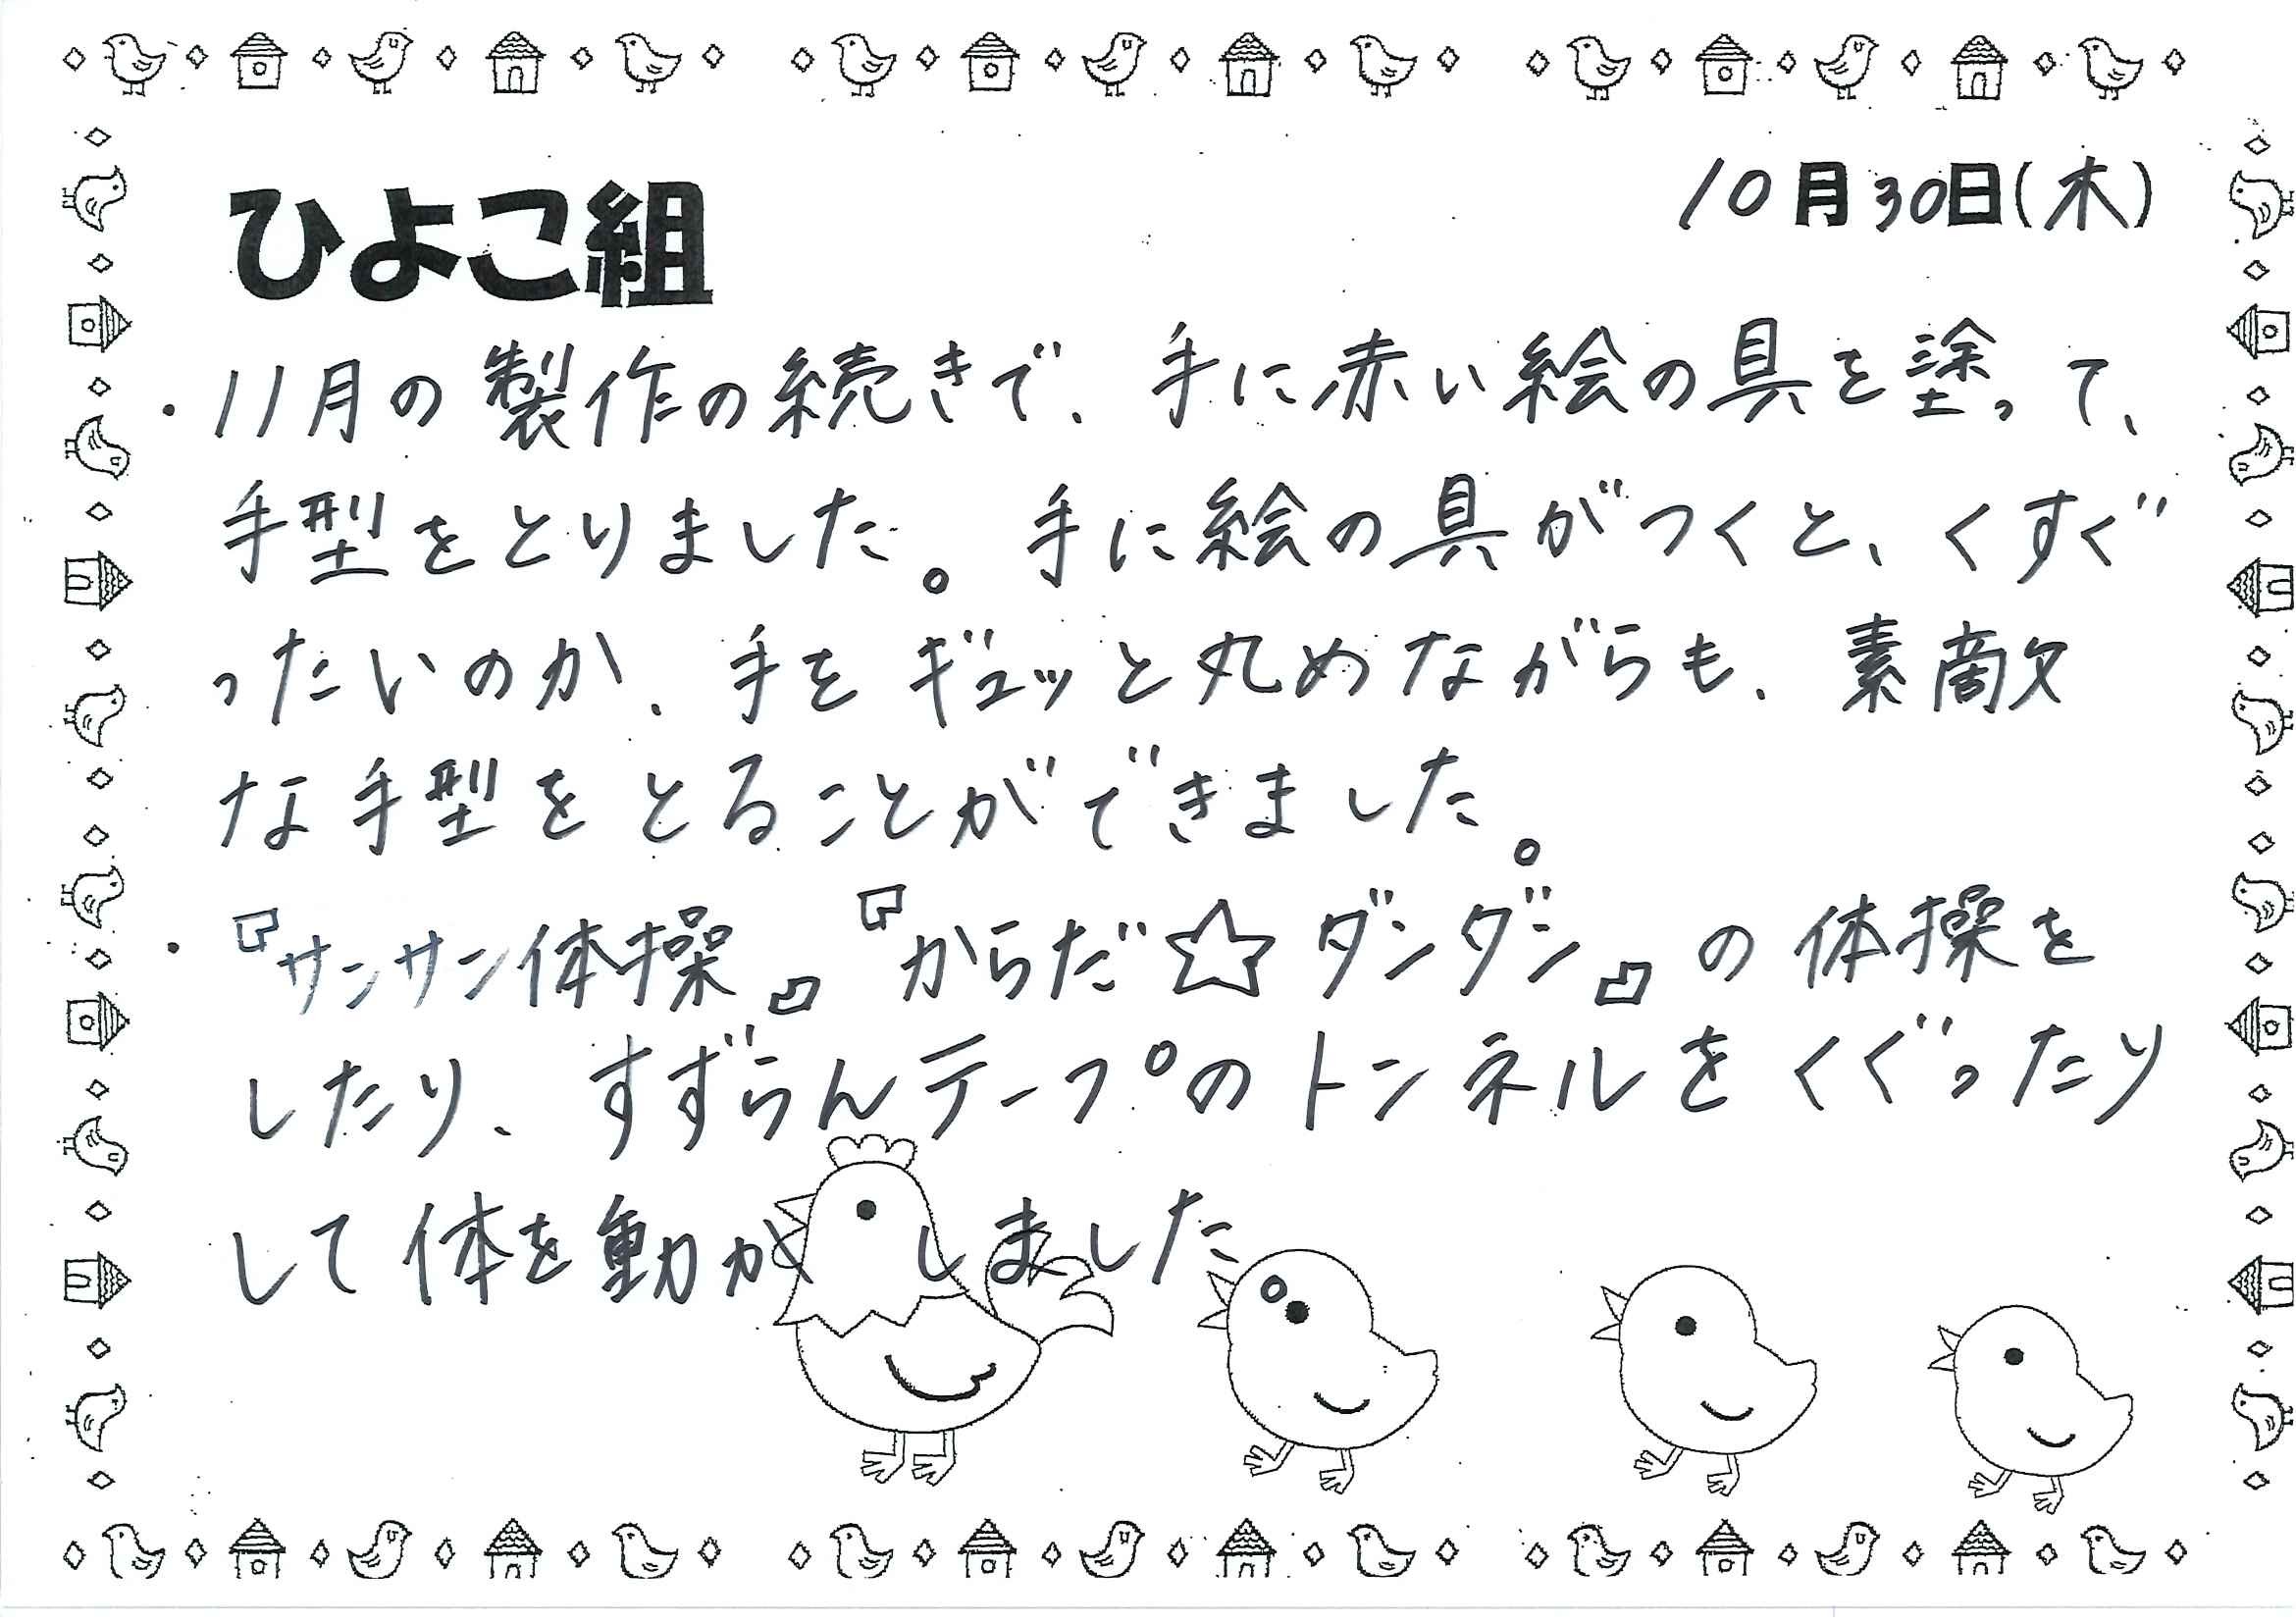 10月30日(木)
ひよこ組
・11月の製作の続きで、手に赤い絵の具を塗って、
手型をとりました。手に絵の具がつくと、くすぐ
ったいのか、手をギュッと丸めながらも、素敵
な手型をとることができました。
・『サンサン体操』『からだ☆ダンダン』の体操を
したり、すずらんテープのトンネルをくぐったり
して体を動かしました。